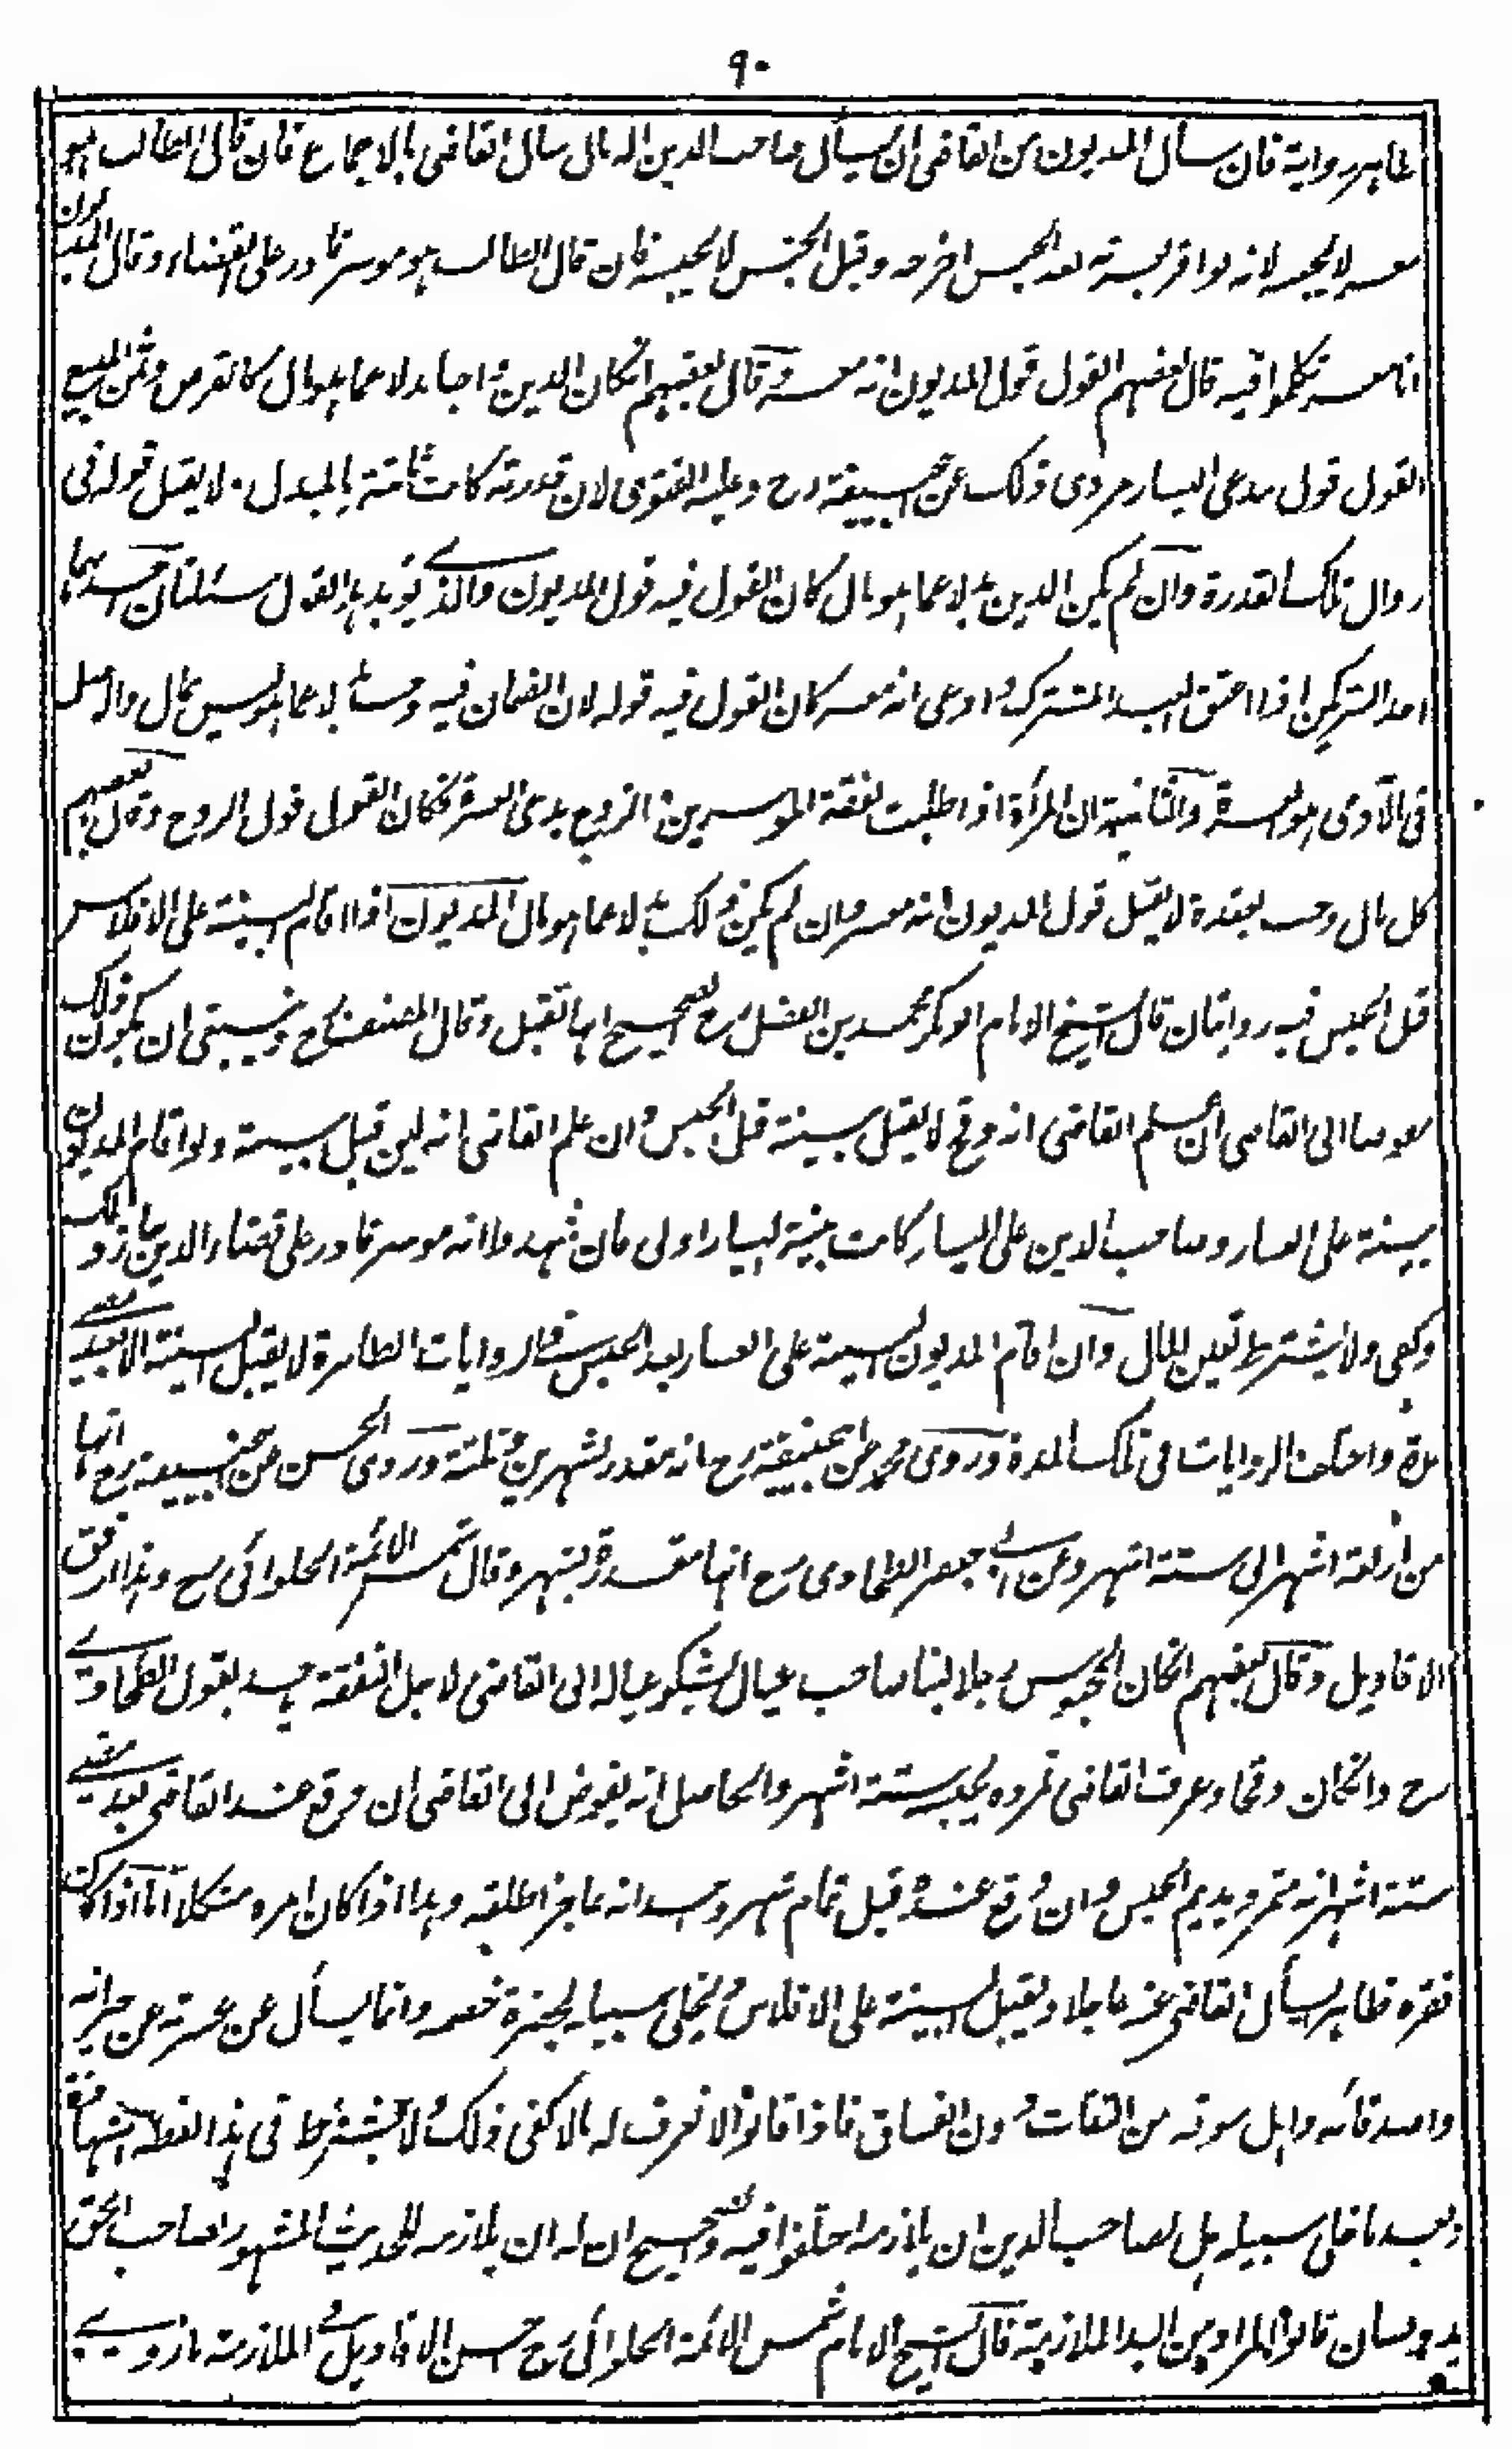 ٩٠
ظاهر رواية فان سأل المديون من القاضى ان يسأل صاحب الدين اله مال سأل القاضى بالاجماع فان قال الطالب هو
معسر لا يحبسه لانه لو اقر بعسرته بعد الحبس اخرجه وقبل الحبس لا يحبسه فان قال الطالب هو موسر قادر على القضاء وقال المديون
انا معسر تكلموا فيه قال بعضهم القول قول المديون انه معسر وقال بعضهم انكان الدين واجبا بدلا عما هو مال كالقرض وثمن المبيع
القول قول مدعى اليسار مروى ذلك عن ابيحنيفة رح وعليه الفتوى لان قدرته كانت ثابتة بالمبدل . لا يقبل قوله فى
زوال تلك القدرة وان لم يكن الدين بدلا عما هو مال كان القول فيه قول المديون والذي يؤيد هذا القول مسئلتان احدهما
احد الشريكين اذا اعتق العبد المشترك وادعى انه معسر كان القول فيه قوله لان الضمان فيه وجب بدلا عما ليس بمال والاصل
فى الآدمى هو العسرة والثانية ان المرأة اذا طلبت نفقة الموسرين والزوج يدعى العسرة فكان القول قول الزوج وقال بعضهم
كل مال وجب بعقده لا يقبل قول المديون انه معسر وان لم يكن ذلك بدلا عما هو مال المديون اذا اقام البينة على الافلاس
قبل الحبس فيه روايتان قال الشيخ الامام ابو بكر محمد بن الفضل رح الصحيح انها تقبل وقال المصنف رح وينبغى ان يكون ذلك
مفوضا الى القاضى ان علم القاضى انه وقح لا يقبل بينته قبل الحبس وان علم القاضى انه لين قبل بينته ولو اقام المديون
بينة على العسار وصاحب الدين على اليسار كانت بينة اليسار اولى فان شهدوا انه موسر قادر على قضاء الدين جاز ذلك
وكفى ولا يشترط تعيين المال وان اقام المديون البينة على العسار بعد الحبس فى الروايات الظاهرة لا يقبل البينة الا بعد مضى
مدة واختلفت الروايات فى تلك المدة وروى محمد عن ابيحنيفة رح انه مقدر بشهرين وثلثة وروى الحسن عن ابيحنيفة رح انها
من اربعة اشهر الى ستة اشهر وعن ابي جعفر الطحاوى رح انها مقدرة بشهر وقال شمس الائمة الحلوائى رح وهذا ارفق
الاقاويل وقال بعضهم انكان المحبوس رجلا لينا صاحب عيال يشكو عياله الى القاضى لاجل النفقة يأخذ بقول الطحاوي
رح وانكان وقحا وعرف القاضى تمرده يحبسه ستة اشهر والحاصل انه يفوض الى القاضى ان وقع عند القاضى بعد مضى
ستة اشهر انه متمرد يديم الحبس وان وقع عنده قبل تمام شهر واحد انه عاجز اطلقه وهذا اذا كان امره مشكلا اما اذا كان
فقره ظاهرا يسأل القاضى عنه عاجلا ويقبل البينة على الافلاس ويخلى سبيله بحضرة خصمه وانما يسأل عن عسرته عن جيرانه
واصدقائه واهل سوقه من الثقات دون الفساق فاذا قالوا لا نعرف له مالا كفى ذلك ولا يشترط فى هذا لفظة الشهادة
وبعد ما خلى سبيله هل لصاحب الدين ان يلازمه اختلفوا فيه والصحيح ان له ان يلازمه للحديث المشهور لصاحب الحق
يد ولسان قالوا المراد من اليد الملازمة قال الشيخ الامام شمس الائمة الحلوائى رح احسن الاقاويل فى الملازمة ما روي